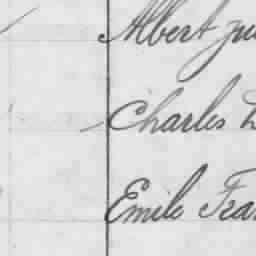 Albert
Charles
Emile